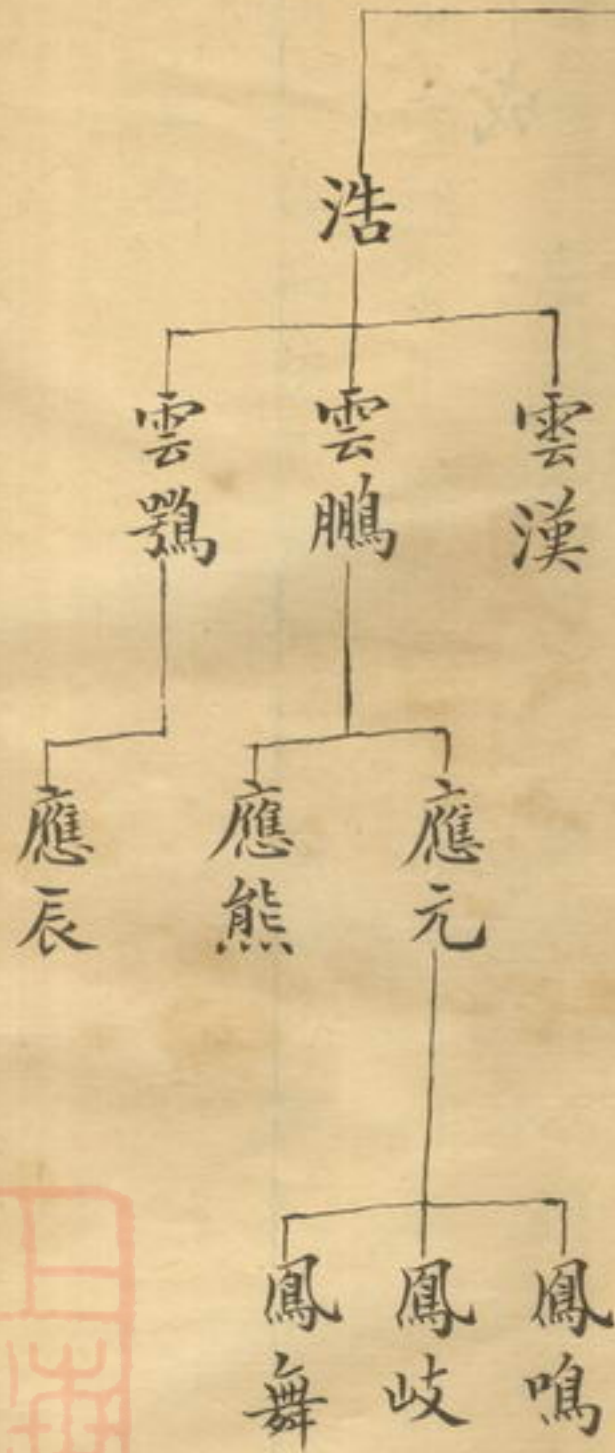 浩
雲漢
雲鵬
雲鶚
應元
應熊
應辰
鳳鳴
鳳岐
鳳舞
上海